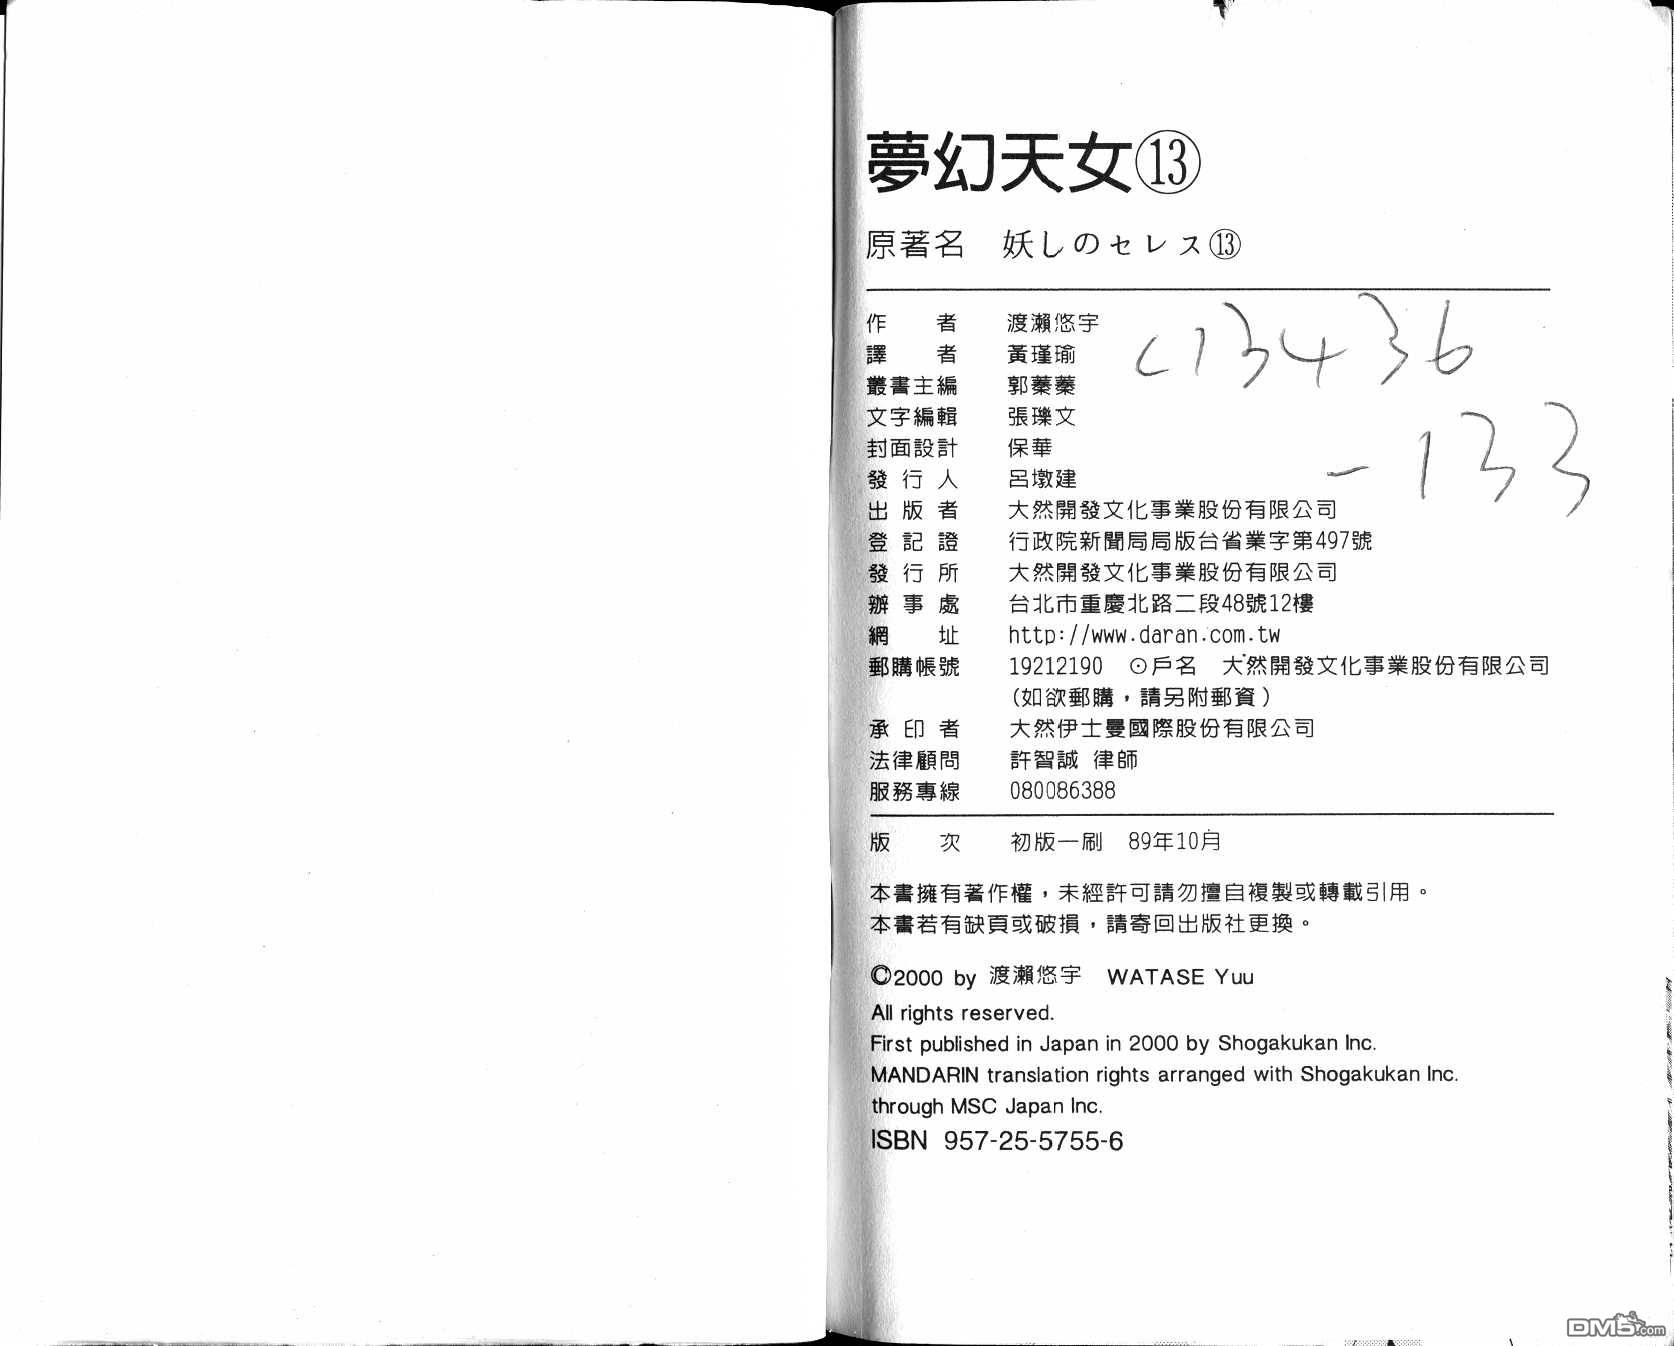 夢幻天女⑬
原著名 妖しのセレス⑬
作者 渡瀨悠宇
譯者 黃瑾瑜
叢書主編 郭蓁蓁
文字編輯 張瓅文
封面設計 保華
發行人 呂墩建
出版者 大然開發文化事業股份有限公司
登記證 行政院新聞局局版台省業字第497號
發行所 大然開發文化事業股份有限公司
辦事處 台北市重慶北路二段48號12樓
網址 http://www.daran.com.tw
郵購帳號 19212190 ⊙戶名 大然開發文化事業股份有限公司
(如欲郵購，請另附郵資)
承印者 大然伊士曼國際股份有限公司
法律顧問 許智誠 律師
服務專線 080086388
版次 初版一刷 89年10月
本書擁有著作權，未經許可請勿擅自複製或轉載引用。
本書若有缺頁或破損，請寄回出版社更換。
©2000 by 渡瀨悠宇 WATASE Yuu
All rights reserved.
First published in Japan in 2000 by Shogakukan Inc.
MANDARIN translation rights arranged with Shogakukan Inc.
through MSC Japan Inc.
ISBN 957-25-5755-6
C13436
-133
DM5.com